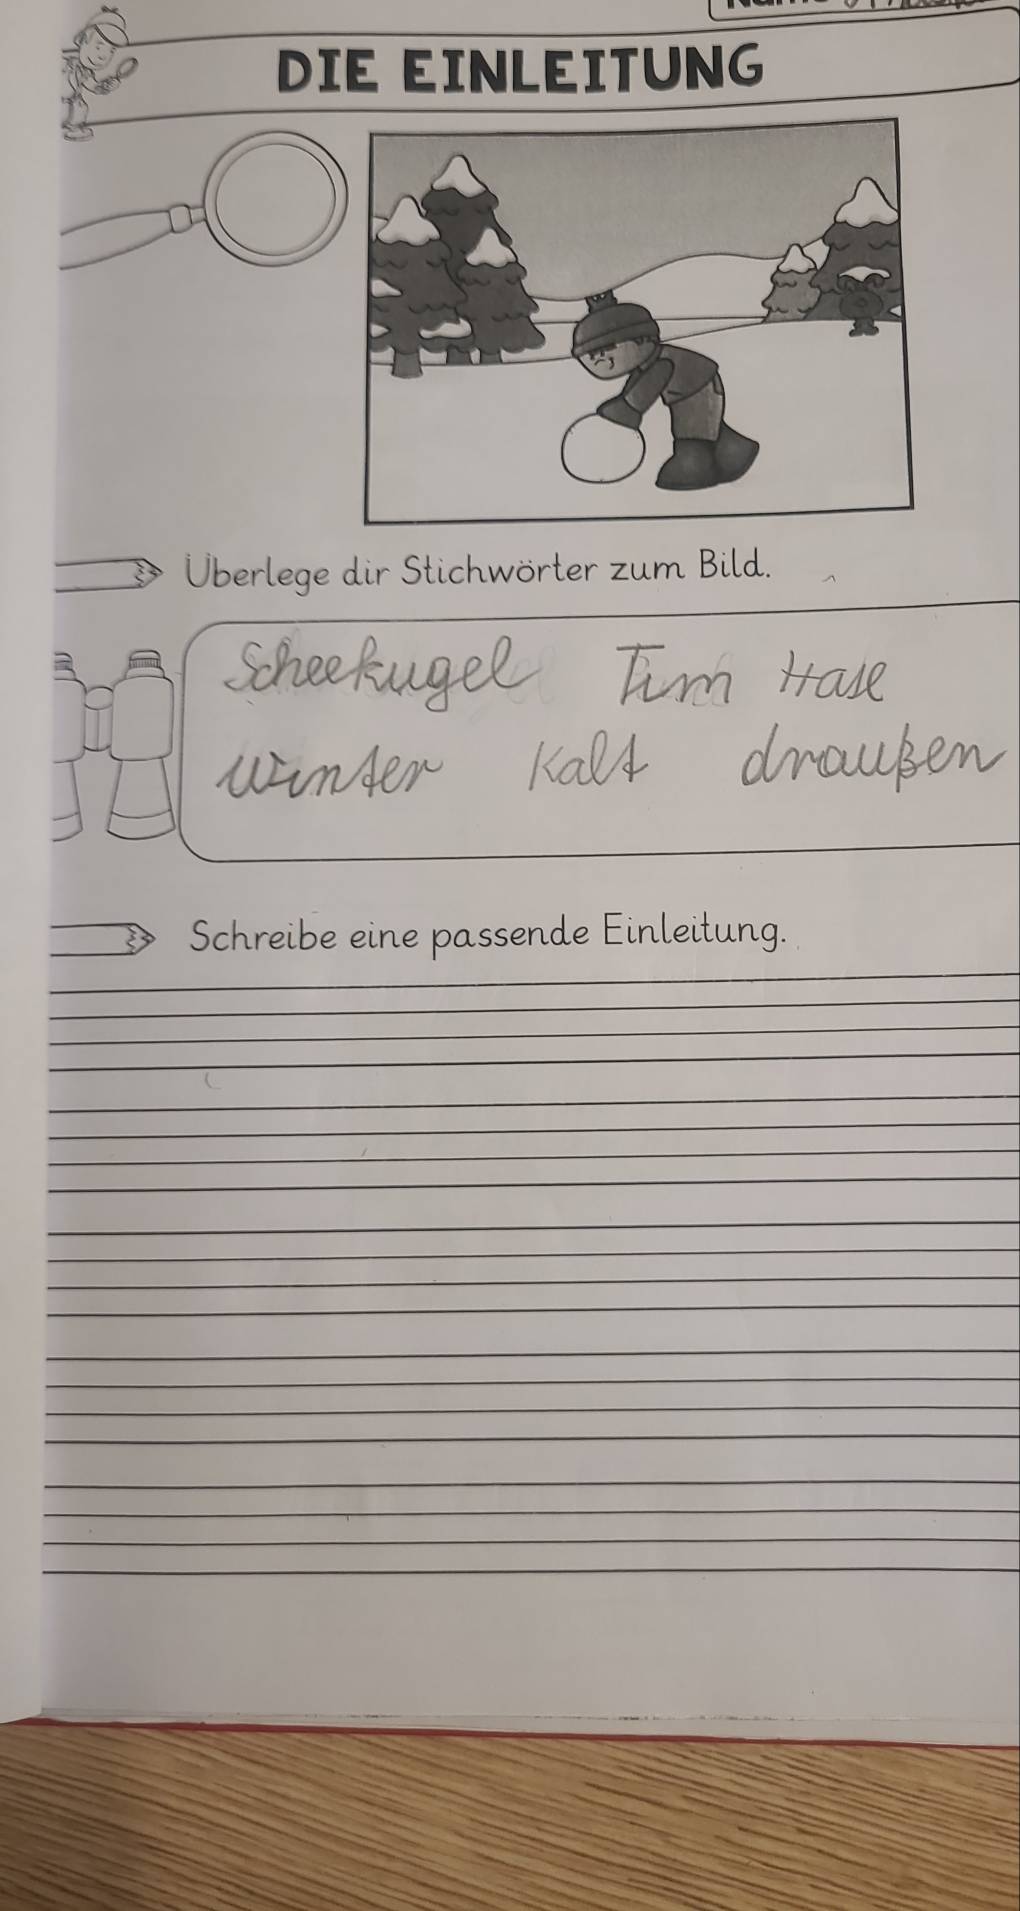 DIE EINLEITUNG
Überlege dir Stichwörter zum Bild.
Scheekugel Tim Hase
Winter Kalt draußen
Schreibe eine passende Einleitung.